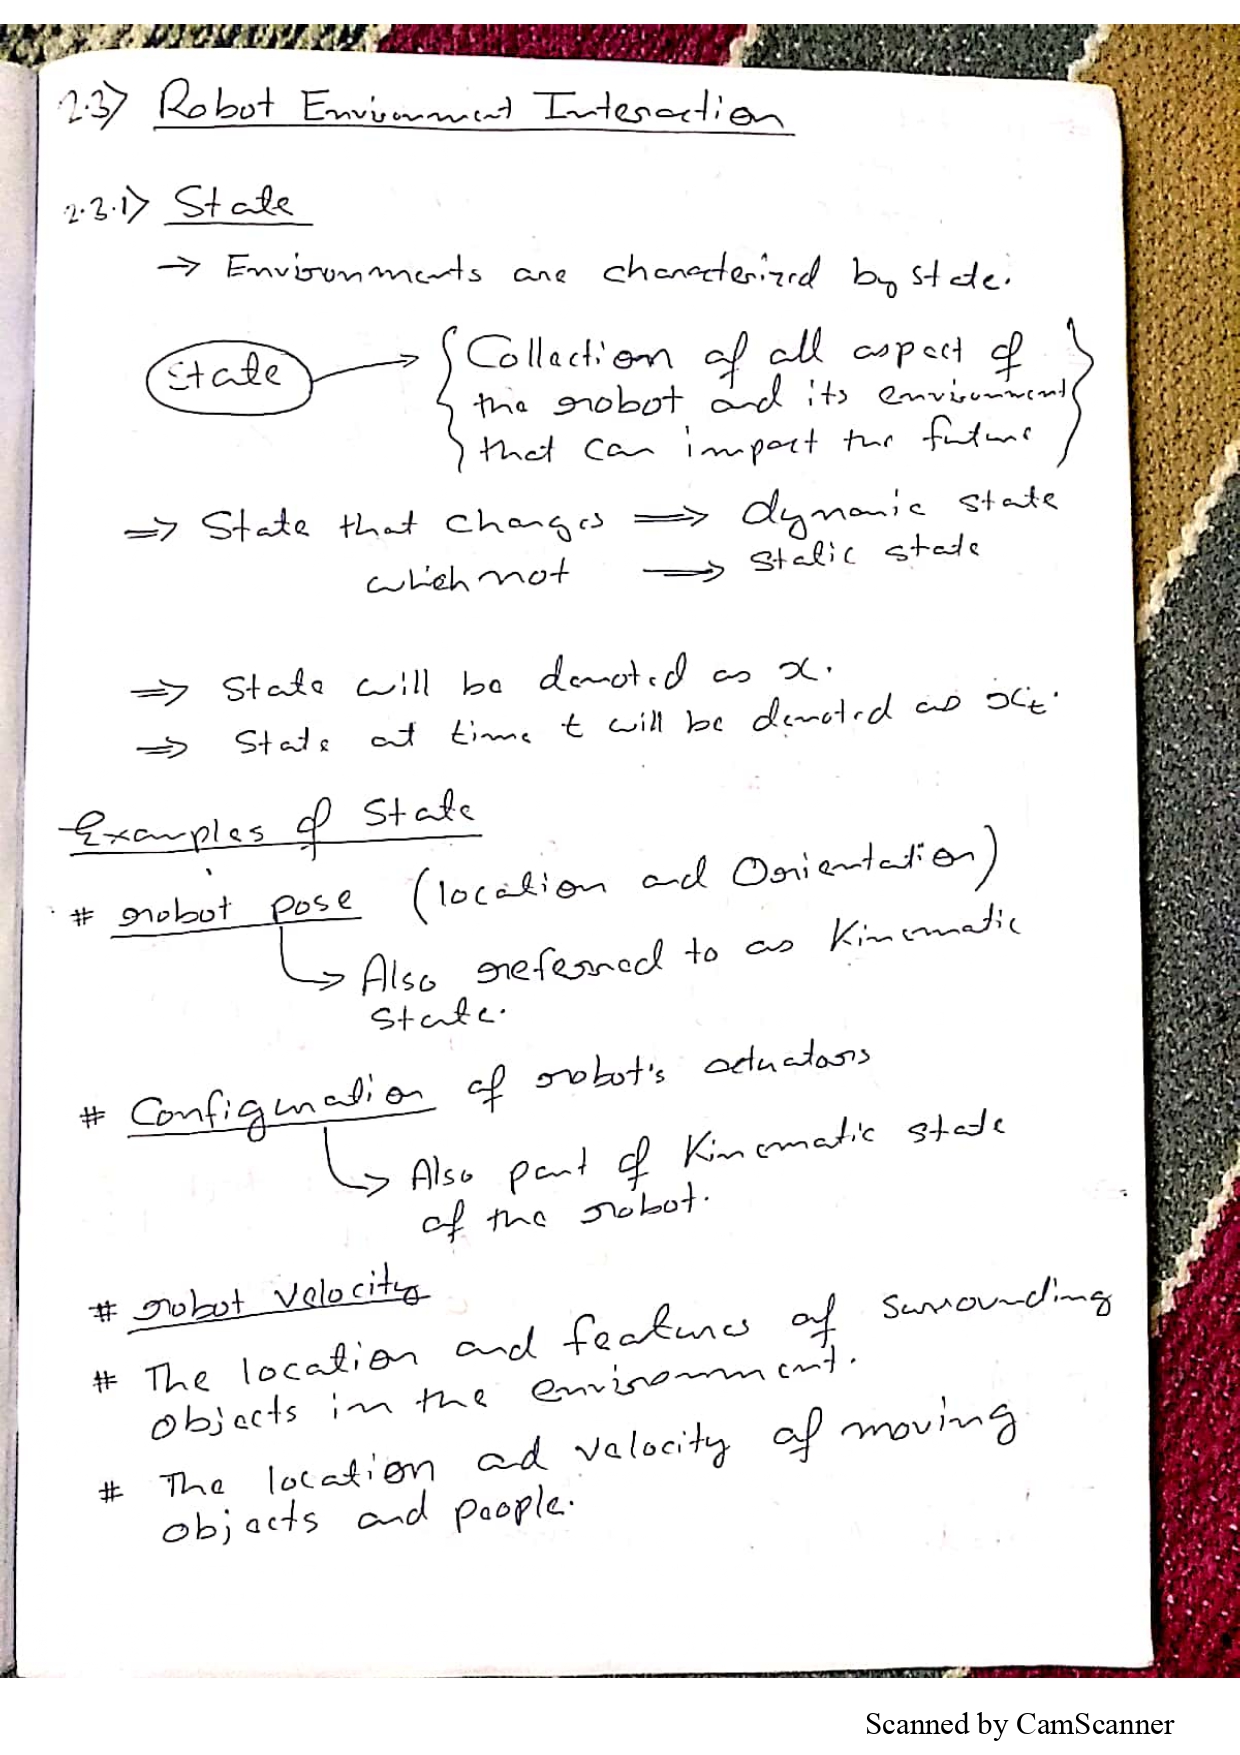 2.3) Robot Environment Interaction
2.3.1) State
→ Environments are characterized by state.
State → { Collection of all aspect of
the robot and its environment
that can impact the future }
⇒ State that changes ⇒ dynamic state
which not ⇒ static state
⇒ State will be denoted as x.
⇒ State at time t will be denoted as xₜ.
Examples of State
# robot pose (location and Orientation)
→ Also referred to as Kinematic
state.
# Configuration of robot's actuators
→ Also part of Kinematic state
of the robot.
# robot velocity
# The location and features of surrounding
objects in the environment.
# The location ad velocity of moving
objects and people.
Scanned by CamScanner